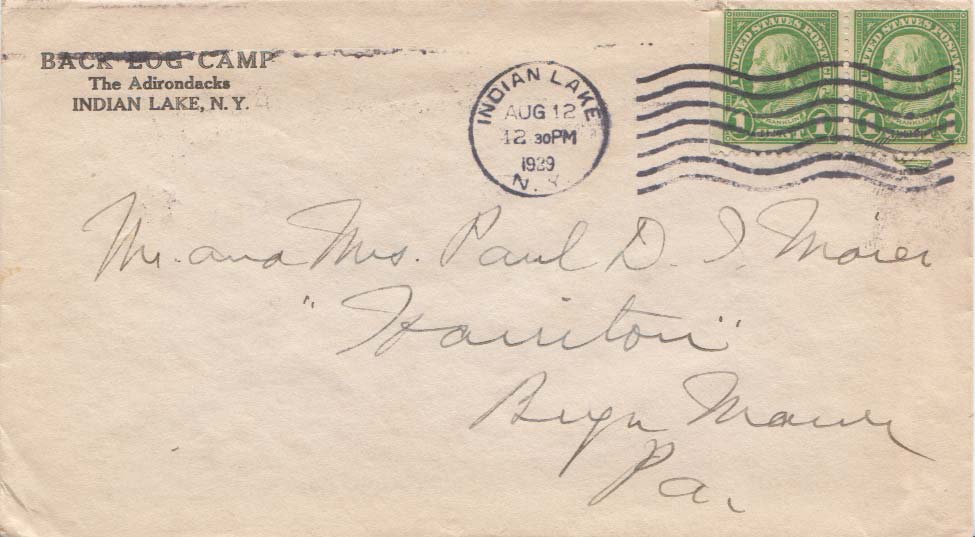 BACK LOG CAMP
The Adirondacks
INDIAN LAKE, N. Y.
INDIAN LAKE
AUG 12
12 30PM
1929
N. Y.
UNITED STATES POSTAGE
FRANKLIN
1 CENT 1
UNITED STATES POSTAGE
FRANKLIN
1 CENT 1
Mr. and Mrs. Paul D. I. Maier
"Harriton"
Bryn Mawr
Pa.